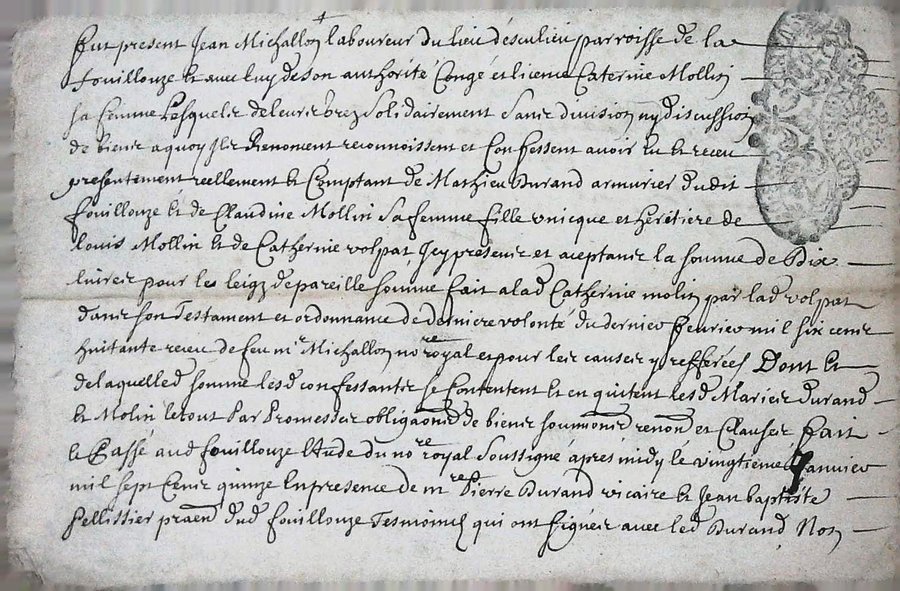 fut present Jean Michallon laboureur du lieu desculieu parroisse de la
fouillouze et avec luy de son authorité Congé et licence Caterine Mollin
sa femme Lesquels de leur gré Solidairement Sans division ny discussion
de biens a quoy Ils Renoncent reconnoissent et Confessent avoir eu et receu
presentement reellement et Comptant de Mathieu Durand armurier dudit
fouillouze et de Claudine Mollin Sa femme fille unicque et heretiere de
Louis Mollin et de Catherine volpat Icy presens et aceptans la somme de Dix
livres pour le leigz de pareille somme fait a lad Catherine molin par lad volpat
dans son Testament et ordonnance de derniere volonté du dernier fevrier mil six cens
huitante receu de feu mr Michallon nore royal et pour les causes y refferées Dont et
de laquelle d somme lesd confessants se Contentent et en quitent lesd Mariés durand
et Molin le tout Par Promesses obligaons de biens soumions renons et Clauses fait
et Passé aud fouillouze Etude du nore royal Soussigné apres midy le vingtieme Janvier
mil sept Cens quinze En presence de mre Pierre Durand vicaire et Jean baptiste
Pellissier praen dud fouillouze Tesmoins qui ont signés avec led Durand Non